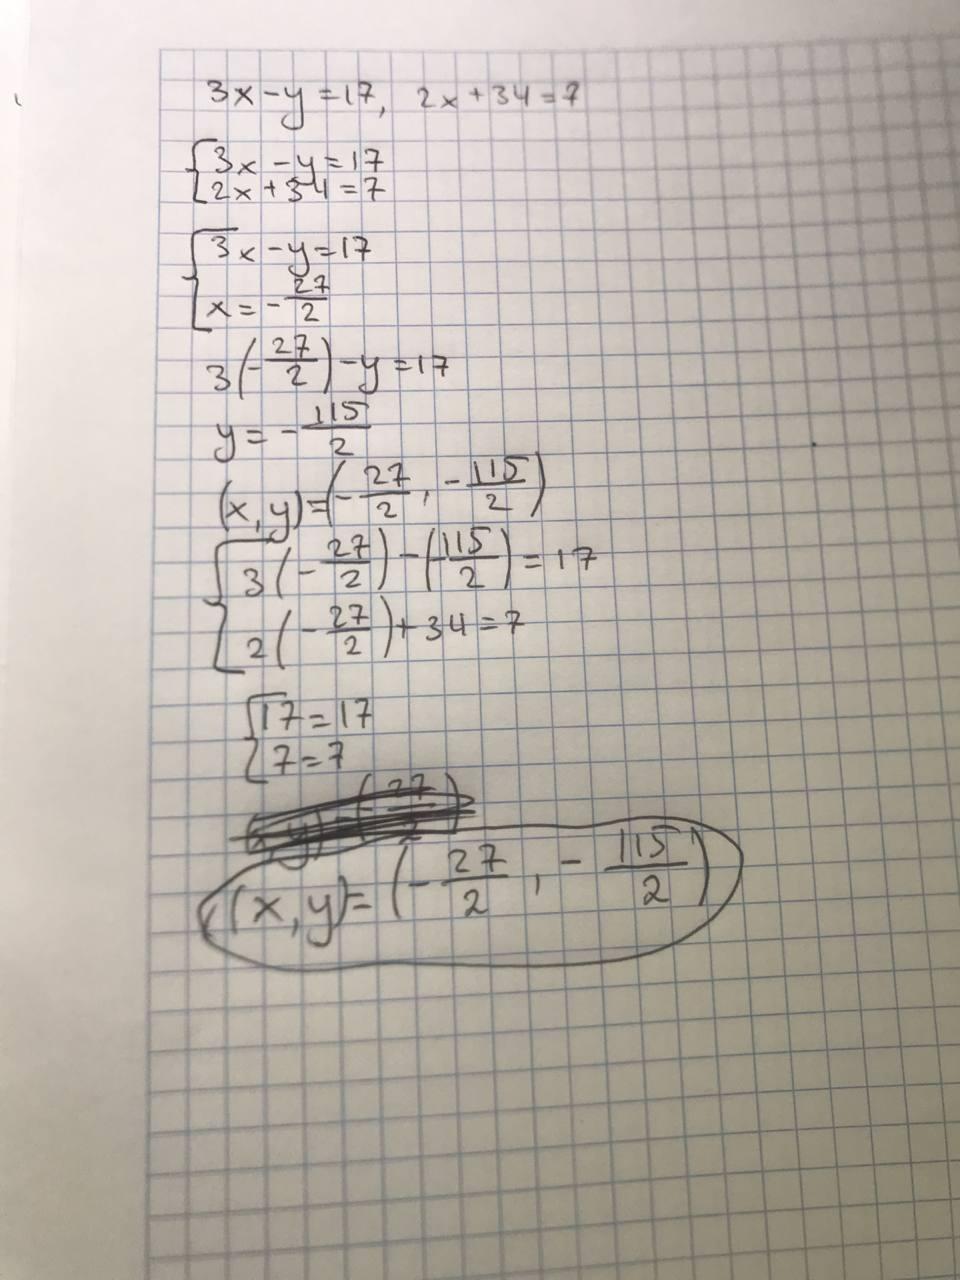 3x-y=17, 2x+34=7
{3x-y=17
2x+34=7
{3x-y=17
x=-27/2
3(-27/2)-y=17
y=-115/2
(x,y)=(-27/2, -115/2)
{3(-27/2)-(-115/2)=17
2(-27/2)+34=7
{17=17
7=7
(x,y)=(-27/2, -115/2)